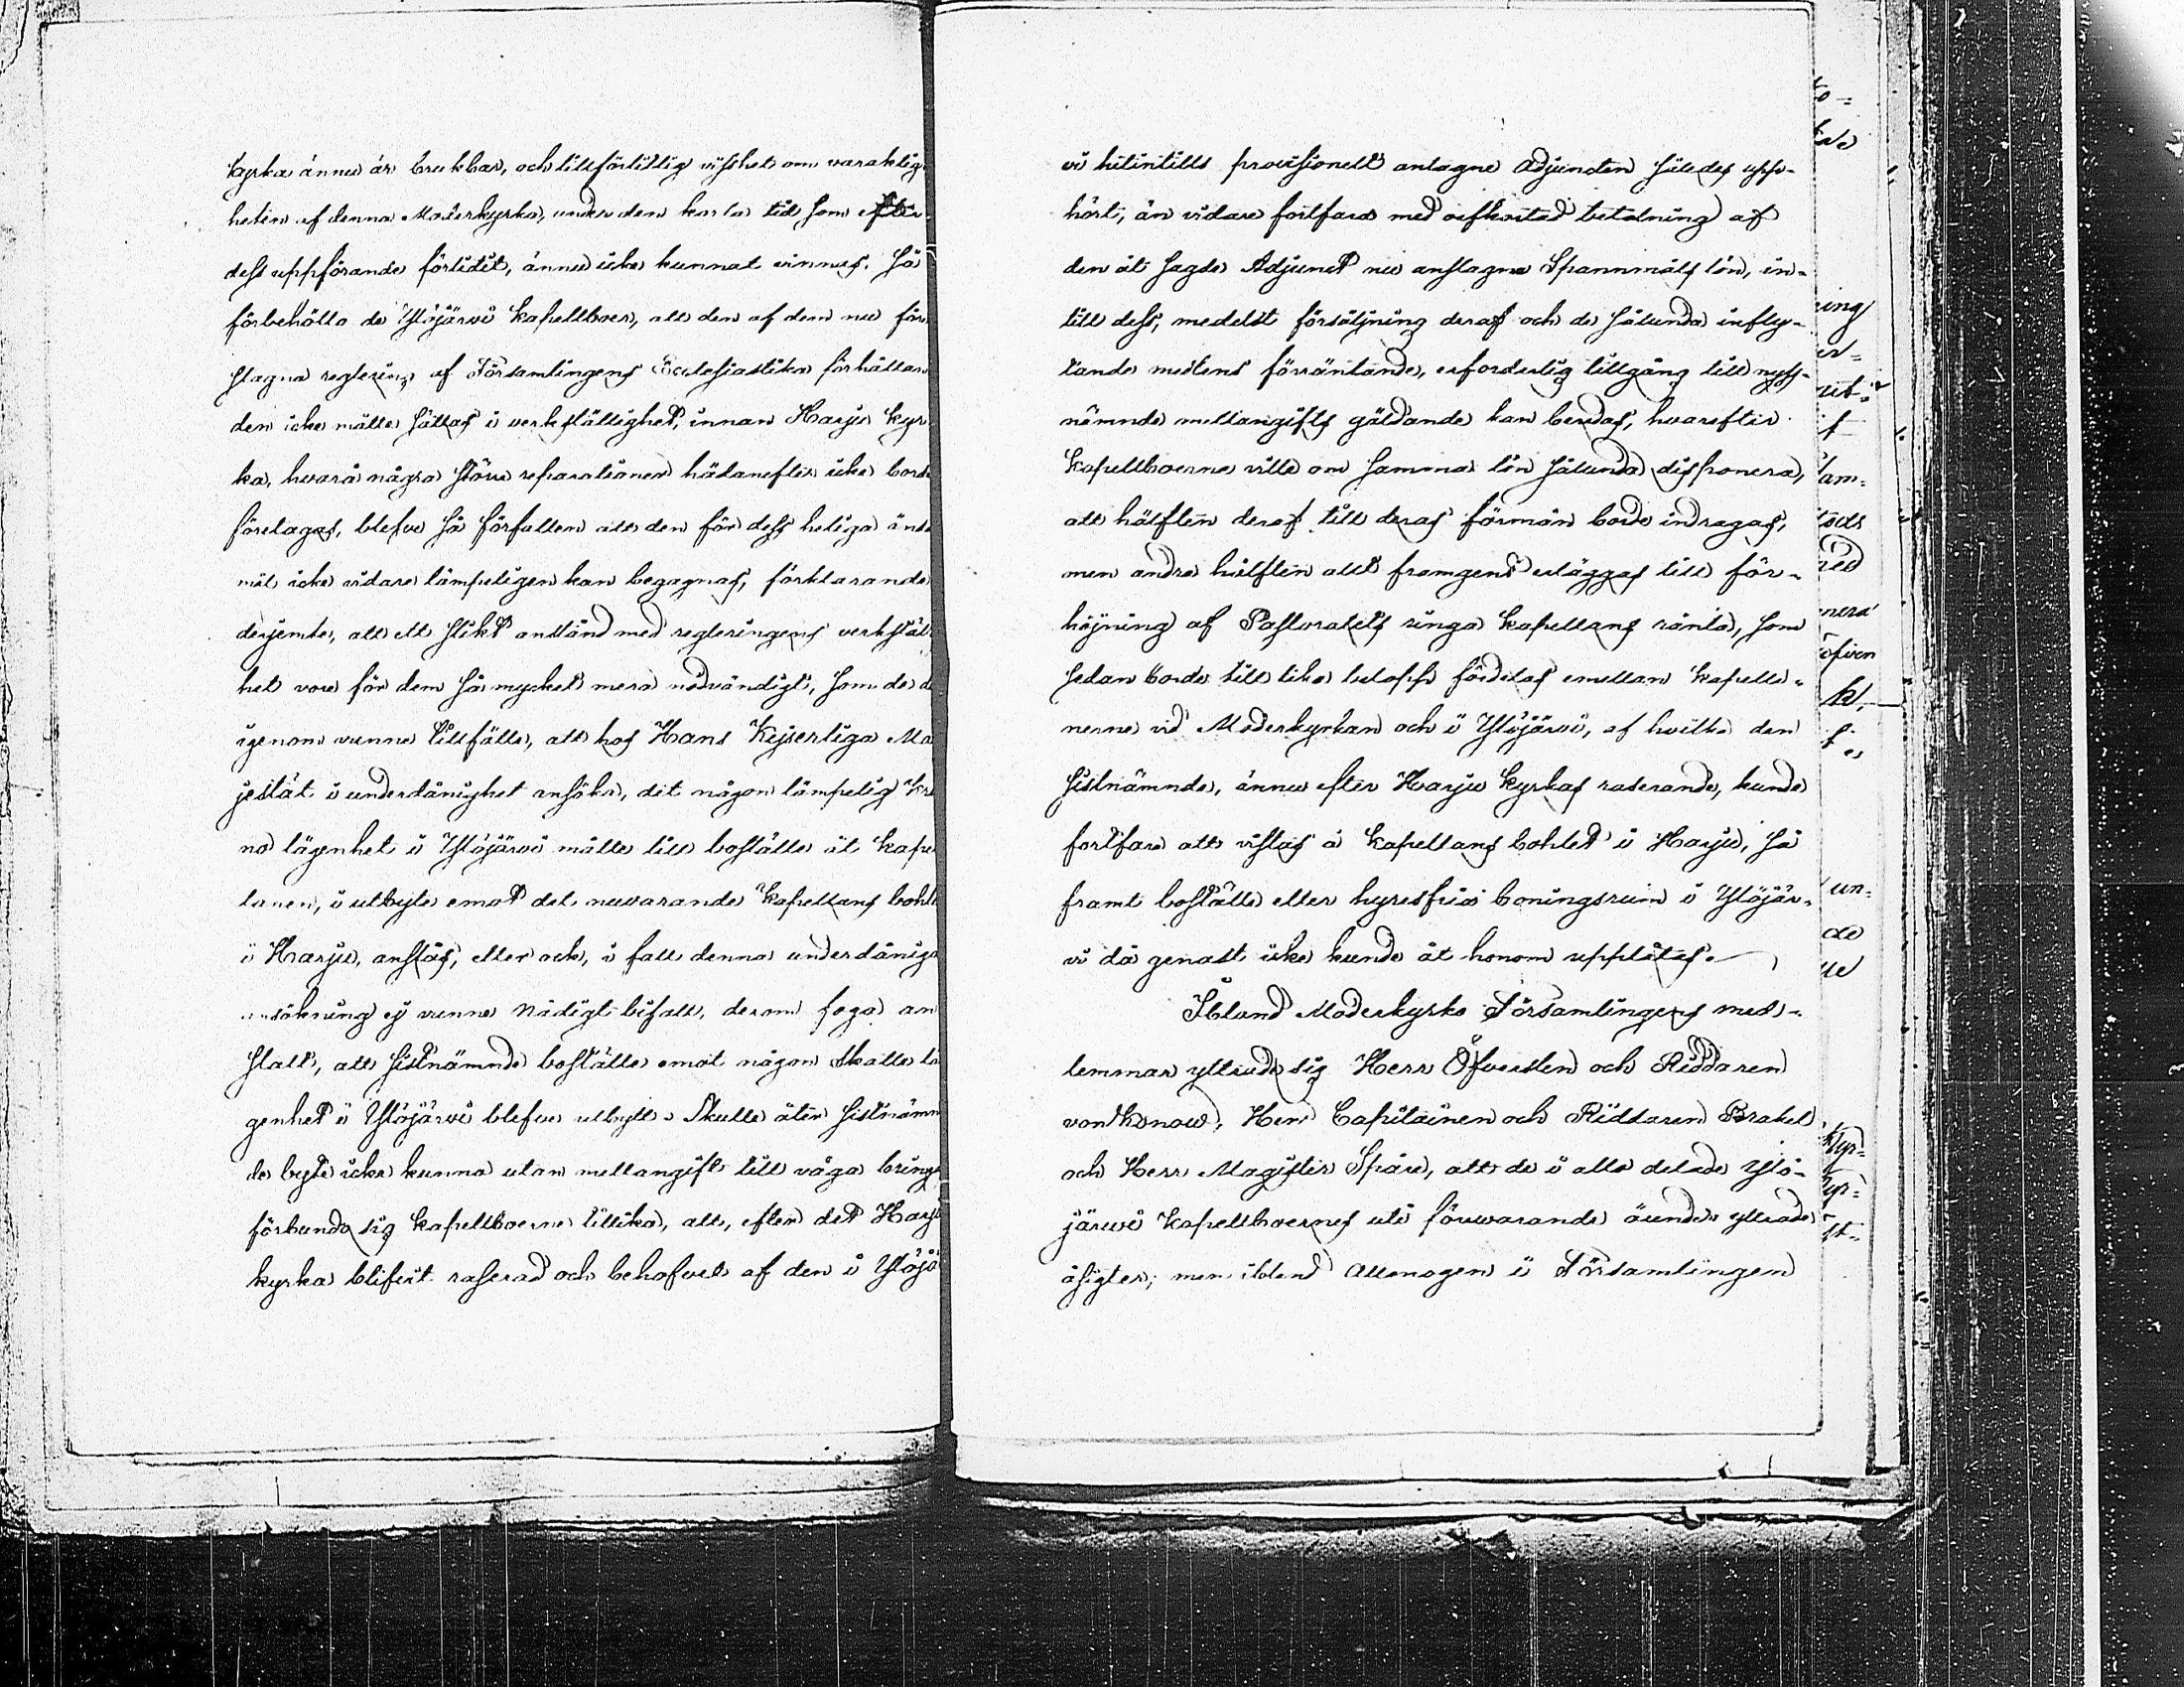 kyrka ännu är brukbar, och tillförlitlig visshet om varaktig
heten af denna Moderkyrka, under den korta tid som efter
dess uppförande förlidit, ännu icke kunnat vinnas. Så
förbehölla de Ylöjärvi kapellboer, att den af dem nu före
slagna reglering af Församlingens Ecclesiastika förhållan
den icke måtte sättas i verkställighet, innan Harju kyr
ka, hvarå några större reparationer hädanefter icke borde
företagas, blefve så förfallen att den för dess heliga ända
mål icke vidare lämpeligen kan begagnas, förklarande
derjemte, att ett slikt anstånd med regleringens verkstäl
het vore för dem så mycket mera nödvändigt, som de de
igenom vunne tillfälle, att hos Hans Kejserliga Ma
jestät i underdånighet ansöka, det någon lämpelig Kro
no lägenhet i Ylöjärvi måtte till boställe åt kapel
lanen, i utbyte emot det nuvarande kapellans bohle
i Harju, anslås, eller ock, i fall denna underdåniga
ansökning ej vunne Nådigt bifall, derom foga an
stalt, att sistnämnde boställe emot någon Skatte lä
genhet i Ylöjärvi blefve utbytt. Skulle åter sistnämn
de byte icke kunna utan mellangift till väga bringas
förbundo sig kapellboerne tillika, att, efter det Harju
kyrka blifvit raserad och behofvet af den i Ylöjär
vi hitintills provisionelt antagne Adjuncten således upp-
hört, än vidare fortfara med oafkortad betalning af
den åt sagde Adjunct nu anslagne Spannmåls lön, in-
till dess, medelst försäljning deraf och de sålunda infly-
tande medlens förräntande, erforderlig tillgång till nyss-
nämnde mellangifts gäldande kan beredas, hvarefter
kapellboerne ville om samma lön sålunda disponera,
att hälften deraf till deras förmån borde indragas,
men andra hälften allt framgent erläggas till för-
höjning af Pastoratets ringa kapellans ränta, som
sedan borde till lika belopp fördelas emellan kapella-
nerne vid Moderkyrkan och i Ylöjärvi, af hvilka den
sistnämnde, ännu efter Harju kyrkas raserande, kunde
fortfara att vistas å kapellans bohlet i Harju, så
framt boställe eller hyresfria boningsrum i Ylöjär-
vi då genast icke kunde åt honom upplåtas.
Ibland Moderkyrko Församlingens med-
lemmar yttrade sig Herr Öfversten och Riddaren
von Konow, Herr Capitainen och Riddaren Brakel
och Herr Magister Spåre, att de i allo delade Ylö-
järvi kapellboernes uti förevarande ämne yttrade
åsigter; men ibland Allmogen i Församlingen